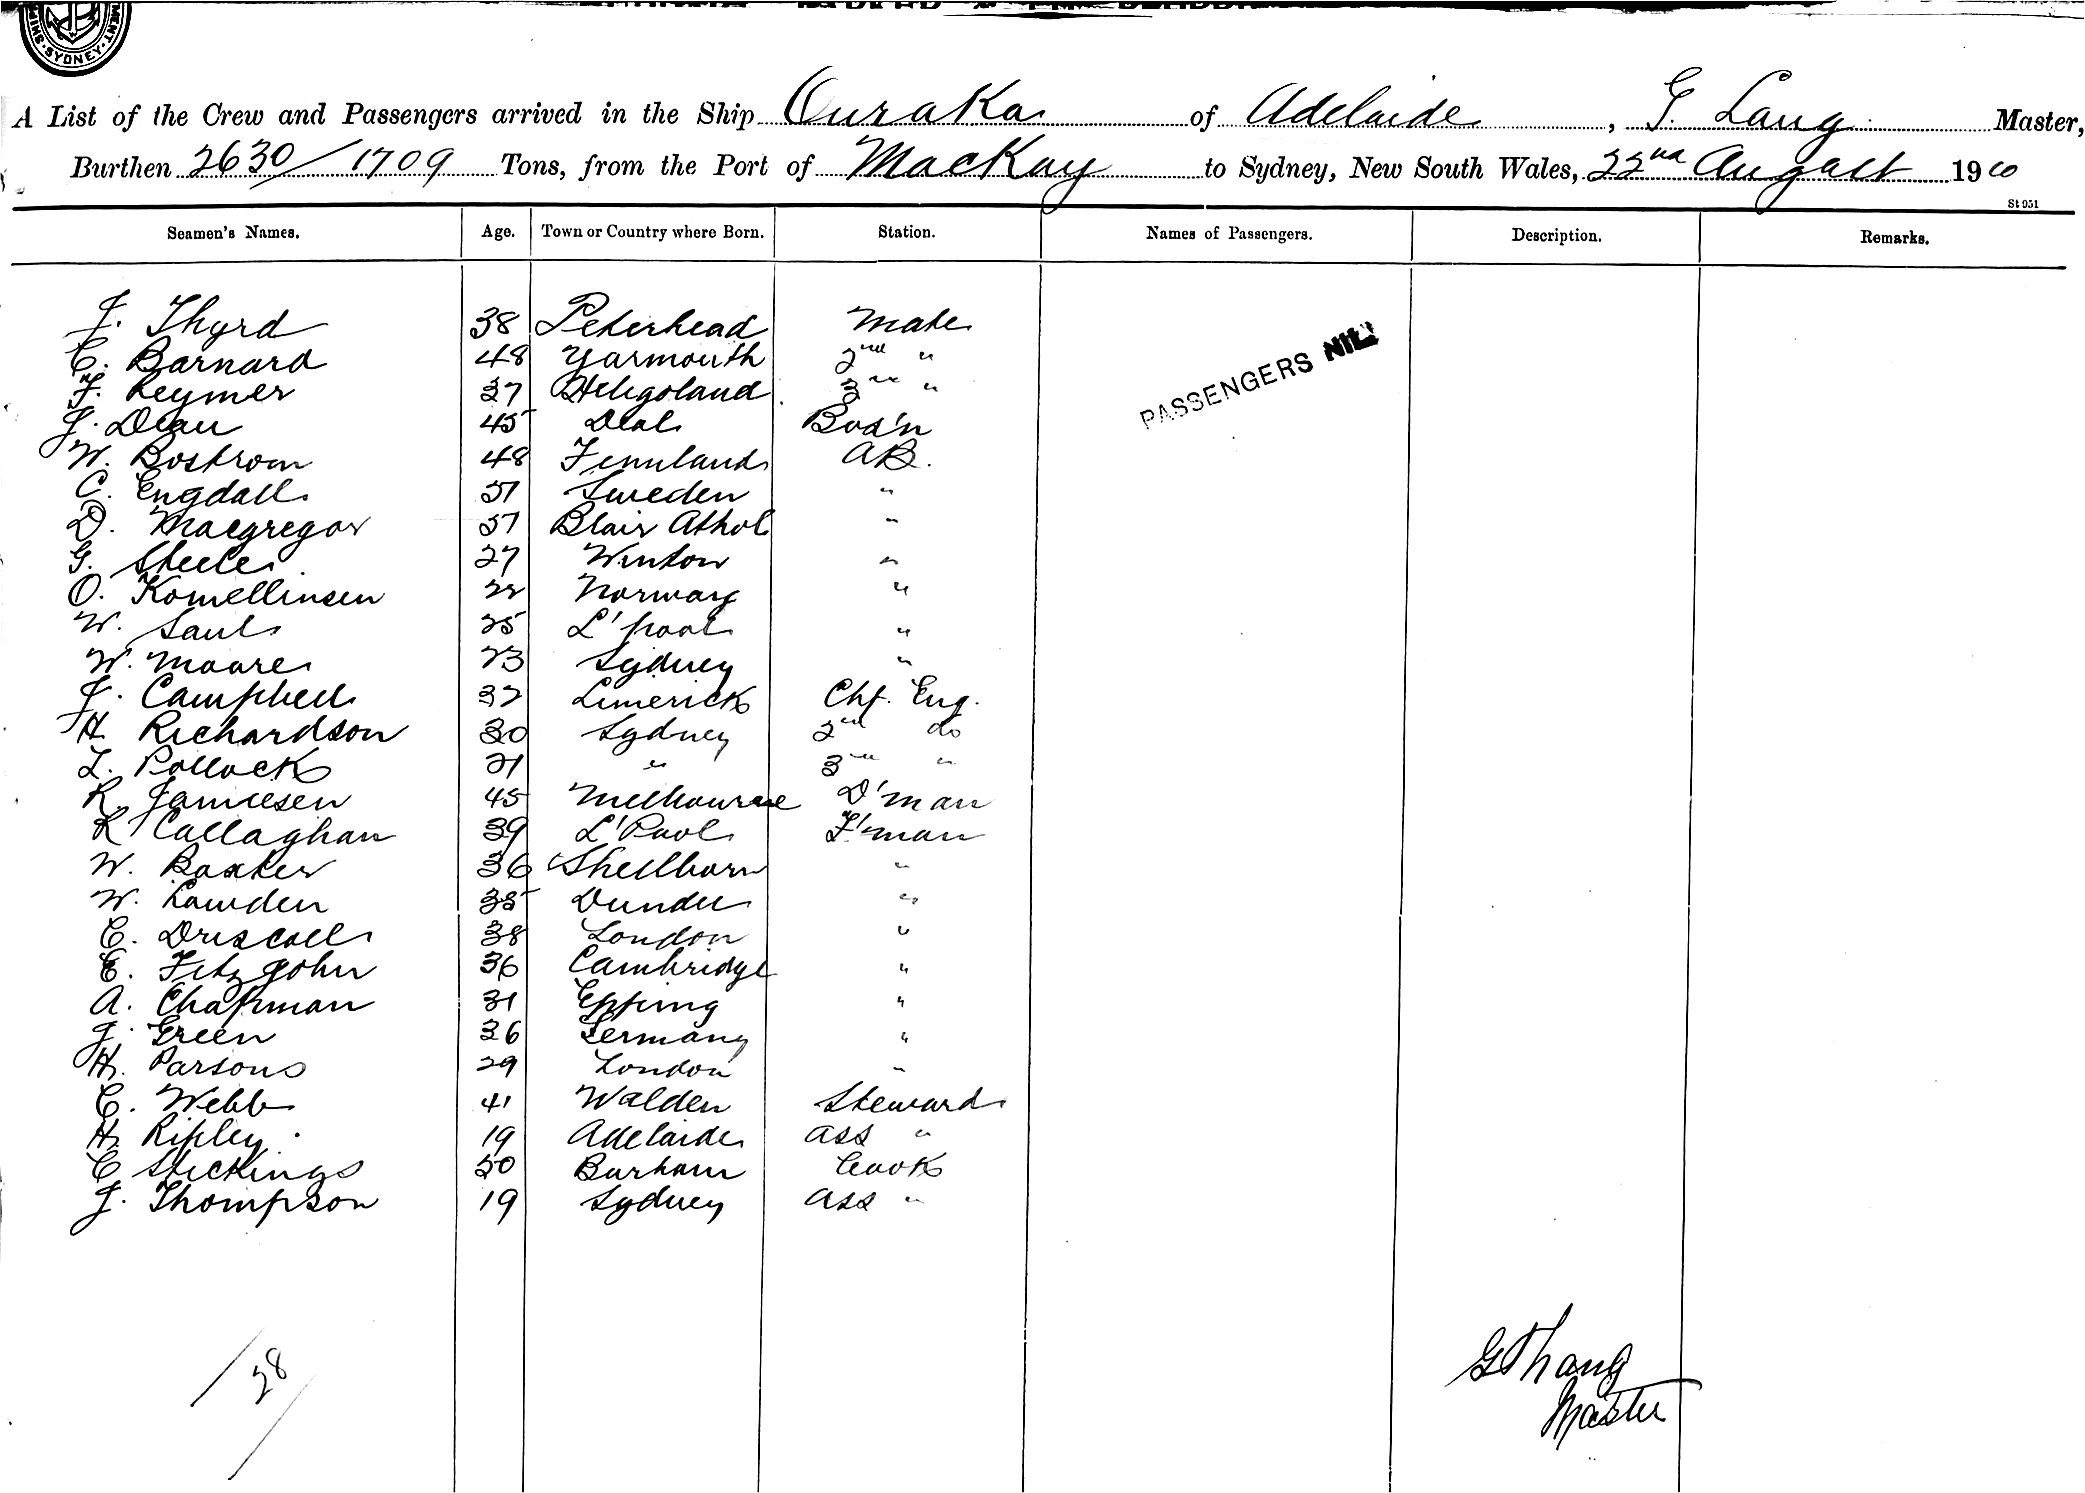 SYDNEY
A List of the Crew and Passengers arrived in the Ship Ouraka of Adelaide, G. Lang Master,
Burthen 2630/1709 Tons, from the Port of MacKay to Sydney, New South Wales, 22nd August 1910
St 951
Seamen's Names. Age. Town or Country where Born. Station. Names of Passengers. Description. Remarks.
J. Thyrd 38 Peterhead Mate
C. Barnard 48 Yarmouth 2nd "
F. Leymer 37 Heligoland 3rd "
J. Dean 45 Deal Bos'n
W. Bostrom 48 Finnland AB.
C. Engdall 51 Sweden "
D. Macgregor 57 Blair Athol "
G. Steele 27 Winton "
O. Komellinsen 22 Norway "
W. Saul 25 L'pool "
W. Moore 23 Sydney "
J. Campbell 37 Limerick Chf. Eng.
H Richardson 30 Sydney 2nd do
L. Pollock 21 " 3rd "
R. Jamiesen 45 Melbourne D'man
R Callaghan 39 L'Pool F'man
W. Baxter 36 Shellborn "
W. Lowden 35 Dundee "
C. Driscoll 38 London "
E. Fitzgohn 36 Cambridge "
A. Chapman 31 Epping "
J. Green 36 Germany "
H. Parsons 29 London "
C. Webb 41 Walden Steward
H. Ripley 19 Adelaide Ass "
C Stickings 50 Burham Cook
J. Thompson 19 Sydney Ass "
PASSENGERS NIL
28
Master